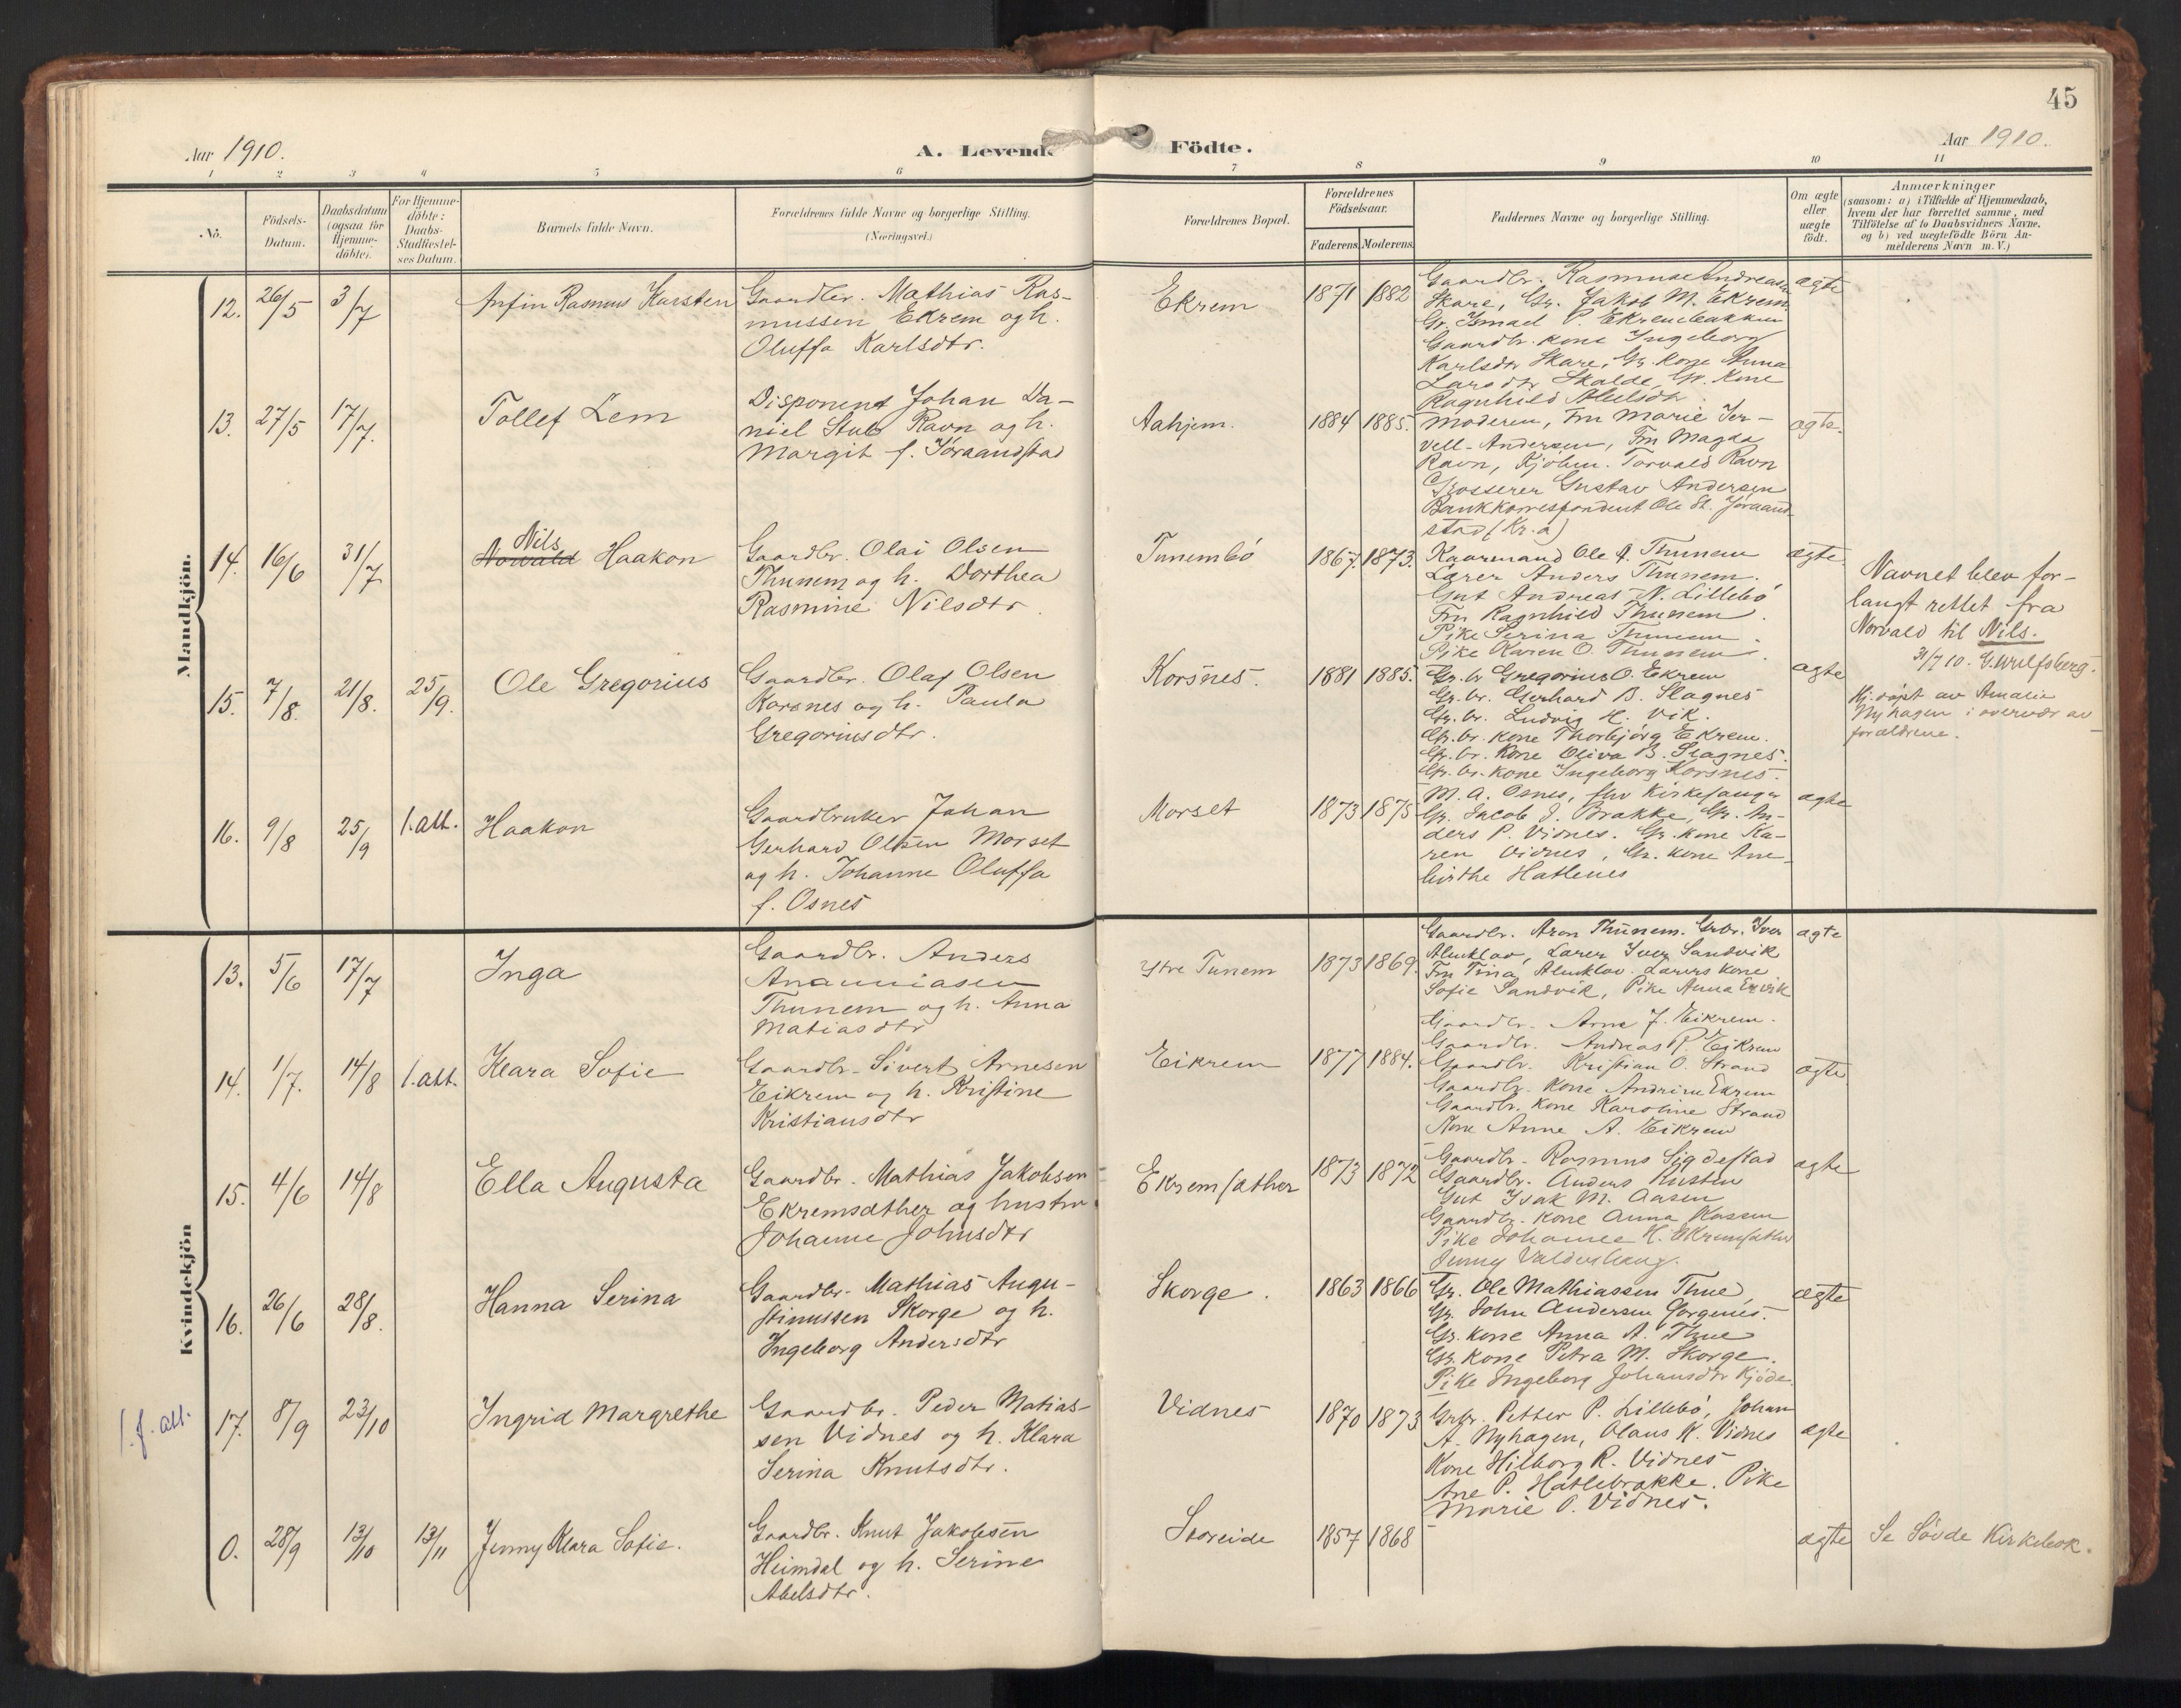 45
Aar 1910.
A. Levende
Födte.
Aar 1910.
1 2 3 4 5 6 7 8 9 10 11
No.
Födsels-
Datum.
Daabsdatum
(ogsaa for
Hjemme-
döbte).
For Hjemme-
döbte:
Daabs-
Stadfæstel-
ses Datum.
Barnets fulde Navn.
Forældrenes fulde Navne og borgerlige Stilling.
(Næringsvei.)
Forældrenes Bopæl.
Forældrenes
Födselsaar.
Faderens. Moderens.
Faddernes Navne og borgerlige Stilling.
Om ægte
eller
uægte
födt.
Anmærkninger
(saasom: a) i Tilfælde af Hjemmedaab,
hvem der har forrettet samme, med
Tilföielse af to Daabsvidners Navne,
og b) ved uægtefödte Börn An-
melderens Navn m. V.)
Mandkjön.
12. 26/5 3/7
Arfin Rasmus Karsten
Gaardbr. Mathias Ras-
mussen Ekrem og h.
Oluffa Karlsdtr.
Ekrem
1871 1882
Gaardbr. Rasmus Andreasen
Skare, Gr. Jakob M. Ekrem
Gr. Ismael P. Ekrembakken
Gaardbr. kone Ingeborg
Karlsdtr Skare, Gr. kone Anna
Larsdtr Skalde, Gr. Kone
Ragnhild Abelsdtr.
ægte
13. 27/5 17/7.
Tollef Lem
Disponent Johan Da-
niel Stub Ravn og h.
Margit f. Jöraandstad
Aahjem.
1884 1885.
Moderen, Fru Marie Jer-
vell-Andersen, Fru Magda
Ravn, Kjöbm. Torvald Ravn
Grosserer Gustav Andersen
Bankkorrespondent Ole St. Jöraand-
stad (Kr.a)
ægte.
14. 16/6 31/7
Nils
Norvald Haakon
Gaardbr. Olai Olsen
Thunem og h. Dorthea
Rasmine Nilsdtr.
Tunembö
1867. 1873.
Kaarmand Ole A. Thunem
Lærer Anders Thunem.
Gut Andreas N. Lillebö
Fru Ragnhild Thunem.
Pike Serina Thunem.
Pike Karen O. Thunem.
ægte.
Navnet blev for-
langt rettet fra
Norvald til Nils.
31/7 10. G. Wulfsberg.
15. 7/8. 21/8. 25/9.
Ole Gregorius
Gaardbr. Olaf Olsen
Korsnes og h. Paula
Gregoriusdtr.
Korsnes.
1881 1885.
Gr.br Gregorius O. Ekrem
Gr. br. Gerhard B. Slagnes
Gr. br. Ludvig H. Vik.
Gr. br. kone Thorbjörg Ekrem.
Gr. br. Kone Oliva B. Slagnes.
Gr. br. kone Ingeborg Korsnes.
ægte
Hj. döpt av Amalie
Nyhagen i overvær av
forældrene.
16. 9/8 25/9 1. att.
Haakon
Gaardbruker Johan
Gerhard Olsen Morset
og h. Johanne Oluffa
f. Osnes
Morset
1873 1875
M. A. Osnes, fhv Kirkesanger
Gr. Jacob J. Brakke, Gr. An-
ders P. Vidnes. Gr. kone Ka-
ren Vidnes, Gr. kone Ane-
birthe Hatlenes
ægte
Kvindekjön
13. 5/6 17/7
Inga
Gaardbr. Anders
Ananiasen
Thunem og h. Anna
Matiasdtr
Ytre Tunem
1873 1869.
Gaardbr. Aron Thunem. Grbr. Iver
Almklov, Lærer Iver Sandvik
Fru Tina Almklov. Lærers kone
Sofie Sandvik, Pike Anna Ervik
ægte
14. 1/7. 14/8 1. att.
Klara Sofie
Gaardbr. Sivert Arnesen
Eikrem og h. Kristine
Kristiansdtr
Eikrem
1877 1884.
Gaardbr. Arne J. Eikrem.
Gaardbr. Andreas P. Eikrem
Gaardbr. Kristian O. Strand
Gaardbr. Kone Andrine Ekrem
Gaardbr. kone Karoline Strand
Kone Anne A. Eikrem
ægte
15. 4/6 14/8
Ella Augusta
Gaardbr. Mathias Jakobsen
Ekremsæther og hustru
Johanne Johnsdtr
Ekremsæther
1873 1872
Gaardbr. Rasmus Sigdestad
Gaardbr. Anders Rusten
Gut Isak M. Aasen
Gaardbr. kone Anna Aasen
Pike Johanne H. Ekremsæther
Jenny Valderhaug.
ægte
16. 26/6 28/8.
Hanna Serina
Gaardbr. Mathias Augu-
stinussen Skorge og h.
Ingeborg Andersdtr
Skorge.
1863 1866
Gr. Ole Mathiassen Thue,
Gr. John Andersen Gorgenes.
Gr. kone Anna A. Thue
Gr. kone Petra M. Skorge.
Pike Ingeborg Johansdtr Kjöde.
ægte
1. f. att.
17. 8/9 23/10
Ingrid Margrethe
Gaardbr. Peder Matias-
sen Vidnes og h. Klara
Serina Knutsdtr.
Vidnes
1870 1873
Grbr. Petter P. Lillebö, Johan
A. Nyhagen, Olaus K. Vidnes
Kone Hilborg R. Vidnes
Ane P. Hatlebrakke. Pike
Marie P. Vidnes.
ægte
0. 28/9 13/10 13/11
Jenny Klara Sofie.
Gaardbr. Knut Jakobsen
Heimdal og h. Serine
Abelsdtr.
Storeide
1857 1868
ægte
Se Sövde Kirkebok.